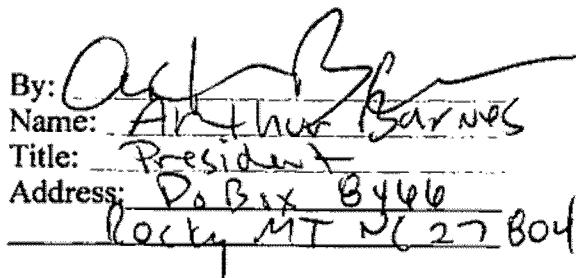 By: Arthur Barnes
Name: Arthur Barnes
Title: President
Address: PO Box 8466
Rocky MT NC 27804